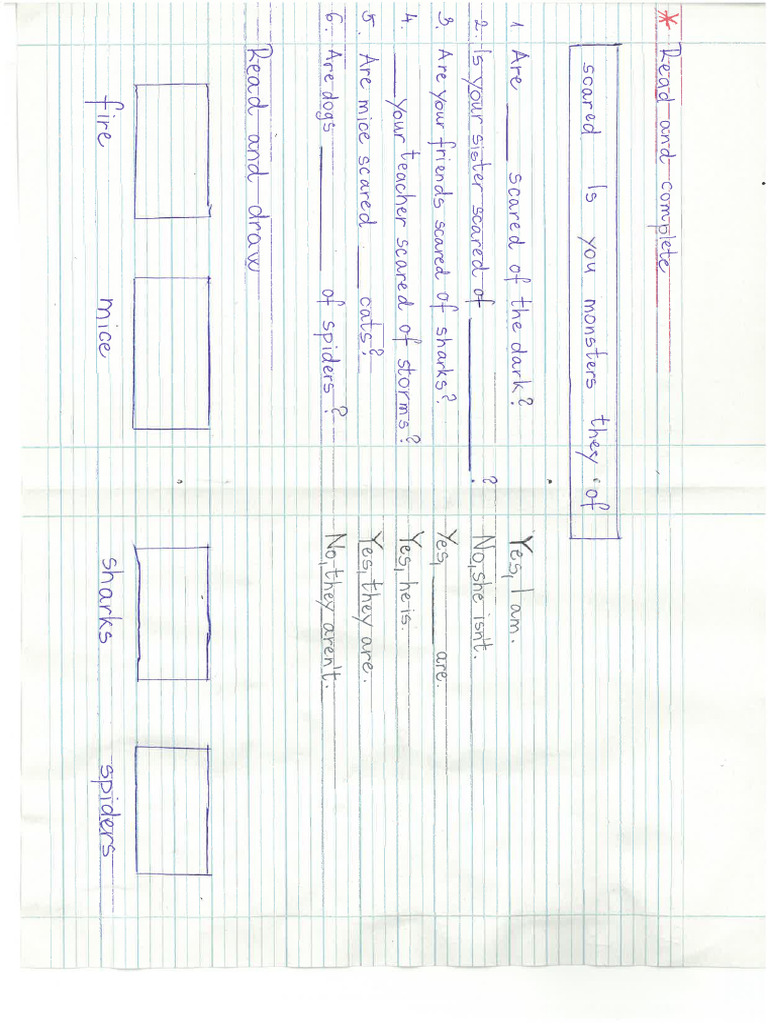 * Read and complete
scared Is you monsters they of
1 Are ____ scared of the dark? Yes, I am.
2. Is your sister scared of ____________? No, she isn't.
3. Are your friends scared of sharks? Yes, ____ are.
4. ____ your teacher scared of storms? Yes, he is.
5. Are mice scared ____ cats? Yes, they are.
6. Are dogs ________ of spiders? No, they aren't.
Read and draw
fire mice sharks spiders